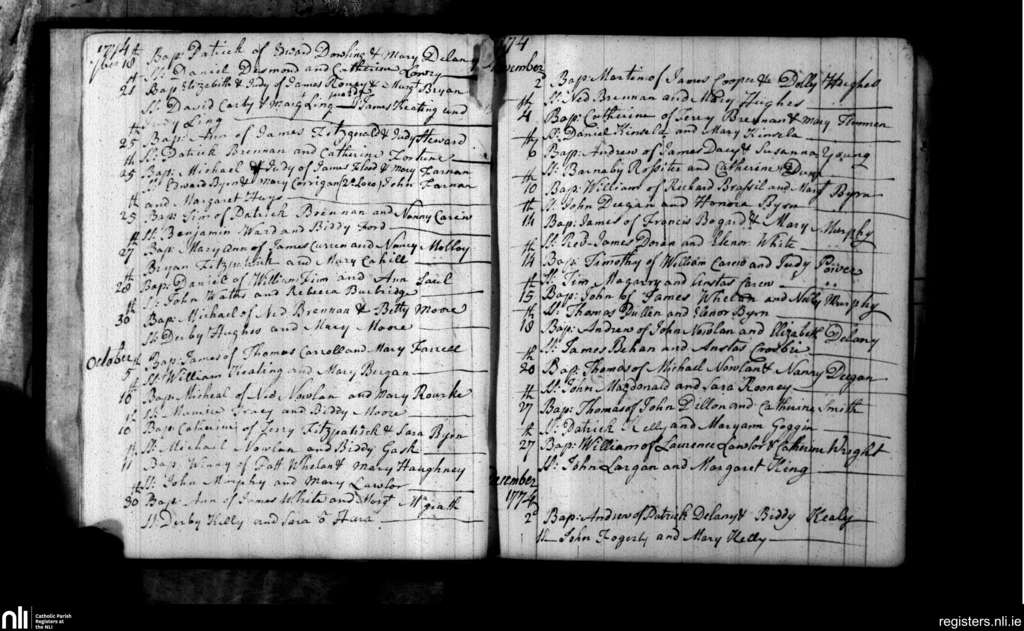 1774
18th Bap: Patrick of Edward Dowling & Mary Delany
Ss. Daniel Desmond and Catherine Lowry
21 Bap: Elizabeth & Judy of James & Margt Bryan
Ss. David Carty & Marg Ling James Keating and
Judy Ling
25 Bap: Ann of James Fitzgerald & Judy Steward
Ss. Patrick Brennan and Catherine
25th Bap: Michael & Judy of James Flood & Mary Farnan
Ss. Edward Byrn & Mary Corrigan John Farnan
and Margaret
25th Bap: Jim of Patrick Brennan and Nanny Carew
Ss. Benjamin Ward and Biddy Ford
27th Bap: Mary Ann of James Curren and Nancy Molloy
Bryan Fitzpatrick and Mary Cahill
28th Bap: Daniel of William Fim and Ann
Ss. John Waths and Rebecca Burbridge
30th Bap: Michael of Ned Brennan & Betty Moore
Ss. Derby Hughes and Mary Moore
October
5th Bap: James of Thomas Carroll and Mary Farrell
Ss. William Healing and Mary Bergan
16th Bap: Micheal of Ned Nowlan and Mary Rourke
Ss. Maurice Tracy and Biddy Moore
Bap: Catherine of Jerry Fitzpatrick & Sara Byrn
Ss. Michael Nowlan and Biddy Gash
11th Bap: Winny of Patt Whelan & Mary Haughney
Ss. John Murphy and Mary Lawlor
30th Bap: Ann of James White and Margt Mcgrath
Ss. Derby Kelly and Sara O Hara
1774
November
2d Bap: Martin of James Cooper & Dolly Hughes
Ss. Ned Brennan and Mary Hughes
4th Bap: Catherine of Jerry Brennan & Mary
Ss. Daniel Kinsela and Mary Kinsela
6th Bap: Andrew of James Dacy & Susanna Young
Ss. Barnaby Rossiter and Catherine
10th Bap: William of Richard Brassil and Mary Byrn
Ss. John Deegan and Honora Byrn
14th Bap: James of Francis Bogard & Mary Murphy
Ss. Red. James Doran and Elenor White
14th Bap: Timothy of William Carew and Judy Power
Ss. Tim Magarry and Anstas Carew
15th Bap: John of James Whelan and Nelly Murphy
Ss. Thomas Pullen and Elenor Byrn
18th Bap: Andrew of John Nowlan and Elizabeth Delany
Ss. James Behan and Anstas
20th Bap: Thomas of Michael Nowlan & Nanny Deegan
Ss. John Macdonald and Sara Rooney
27th Bap: Thomas of John Dillon and Catherine Smith
Ss. Patrick Kelly and Maryann Goggin
27th Bap: William of Laurence Lawlor & Catherine Wright
Ss. John Largan and Margaret King
December
1774
2d Bap: Andrew of Patrick Delany & Biddy Healy
Ss. John Fogerty and Mary Kelly
nli
Catholic Parish
Registers at
the NLI
registers.nli.ie